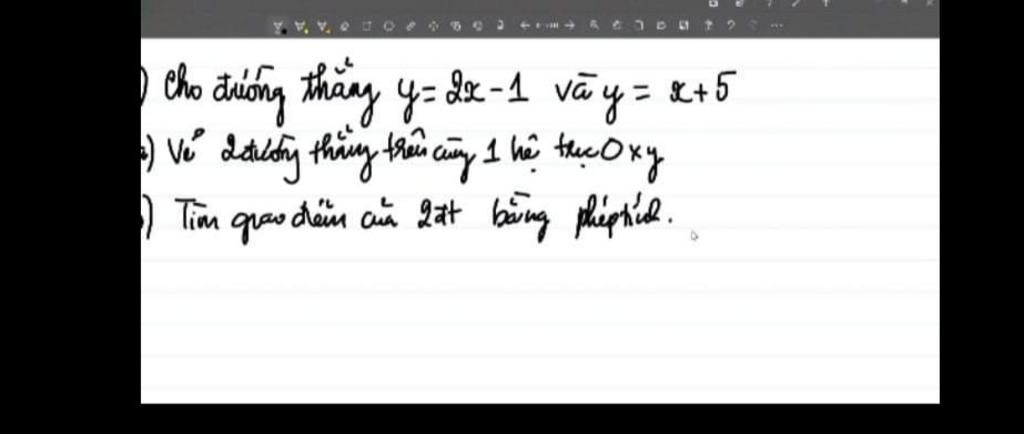 ) Cho đường thẳng y = 2x - 1 và y = x + 5
a) Vẽ 2 đường thẳng trên cùng 1 hệ trục Oxy
) Tìm giao điểm của 2đt bằng phép tính.